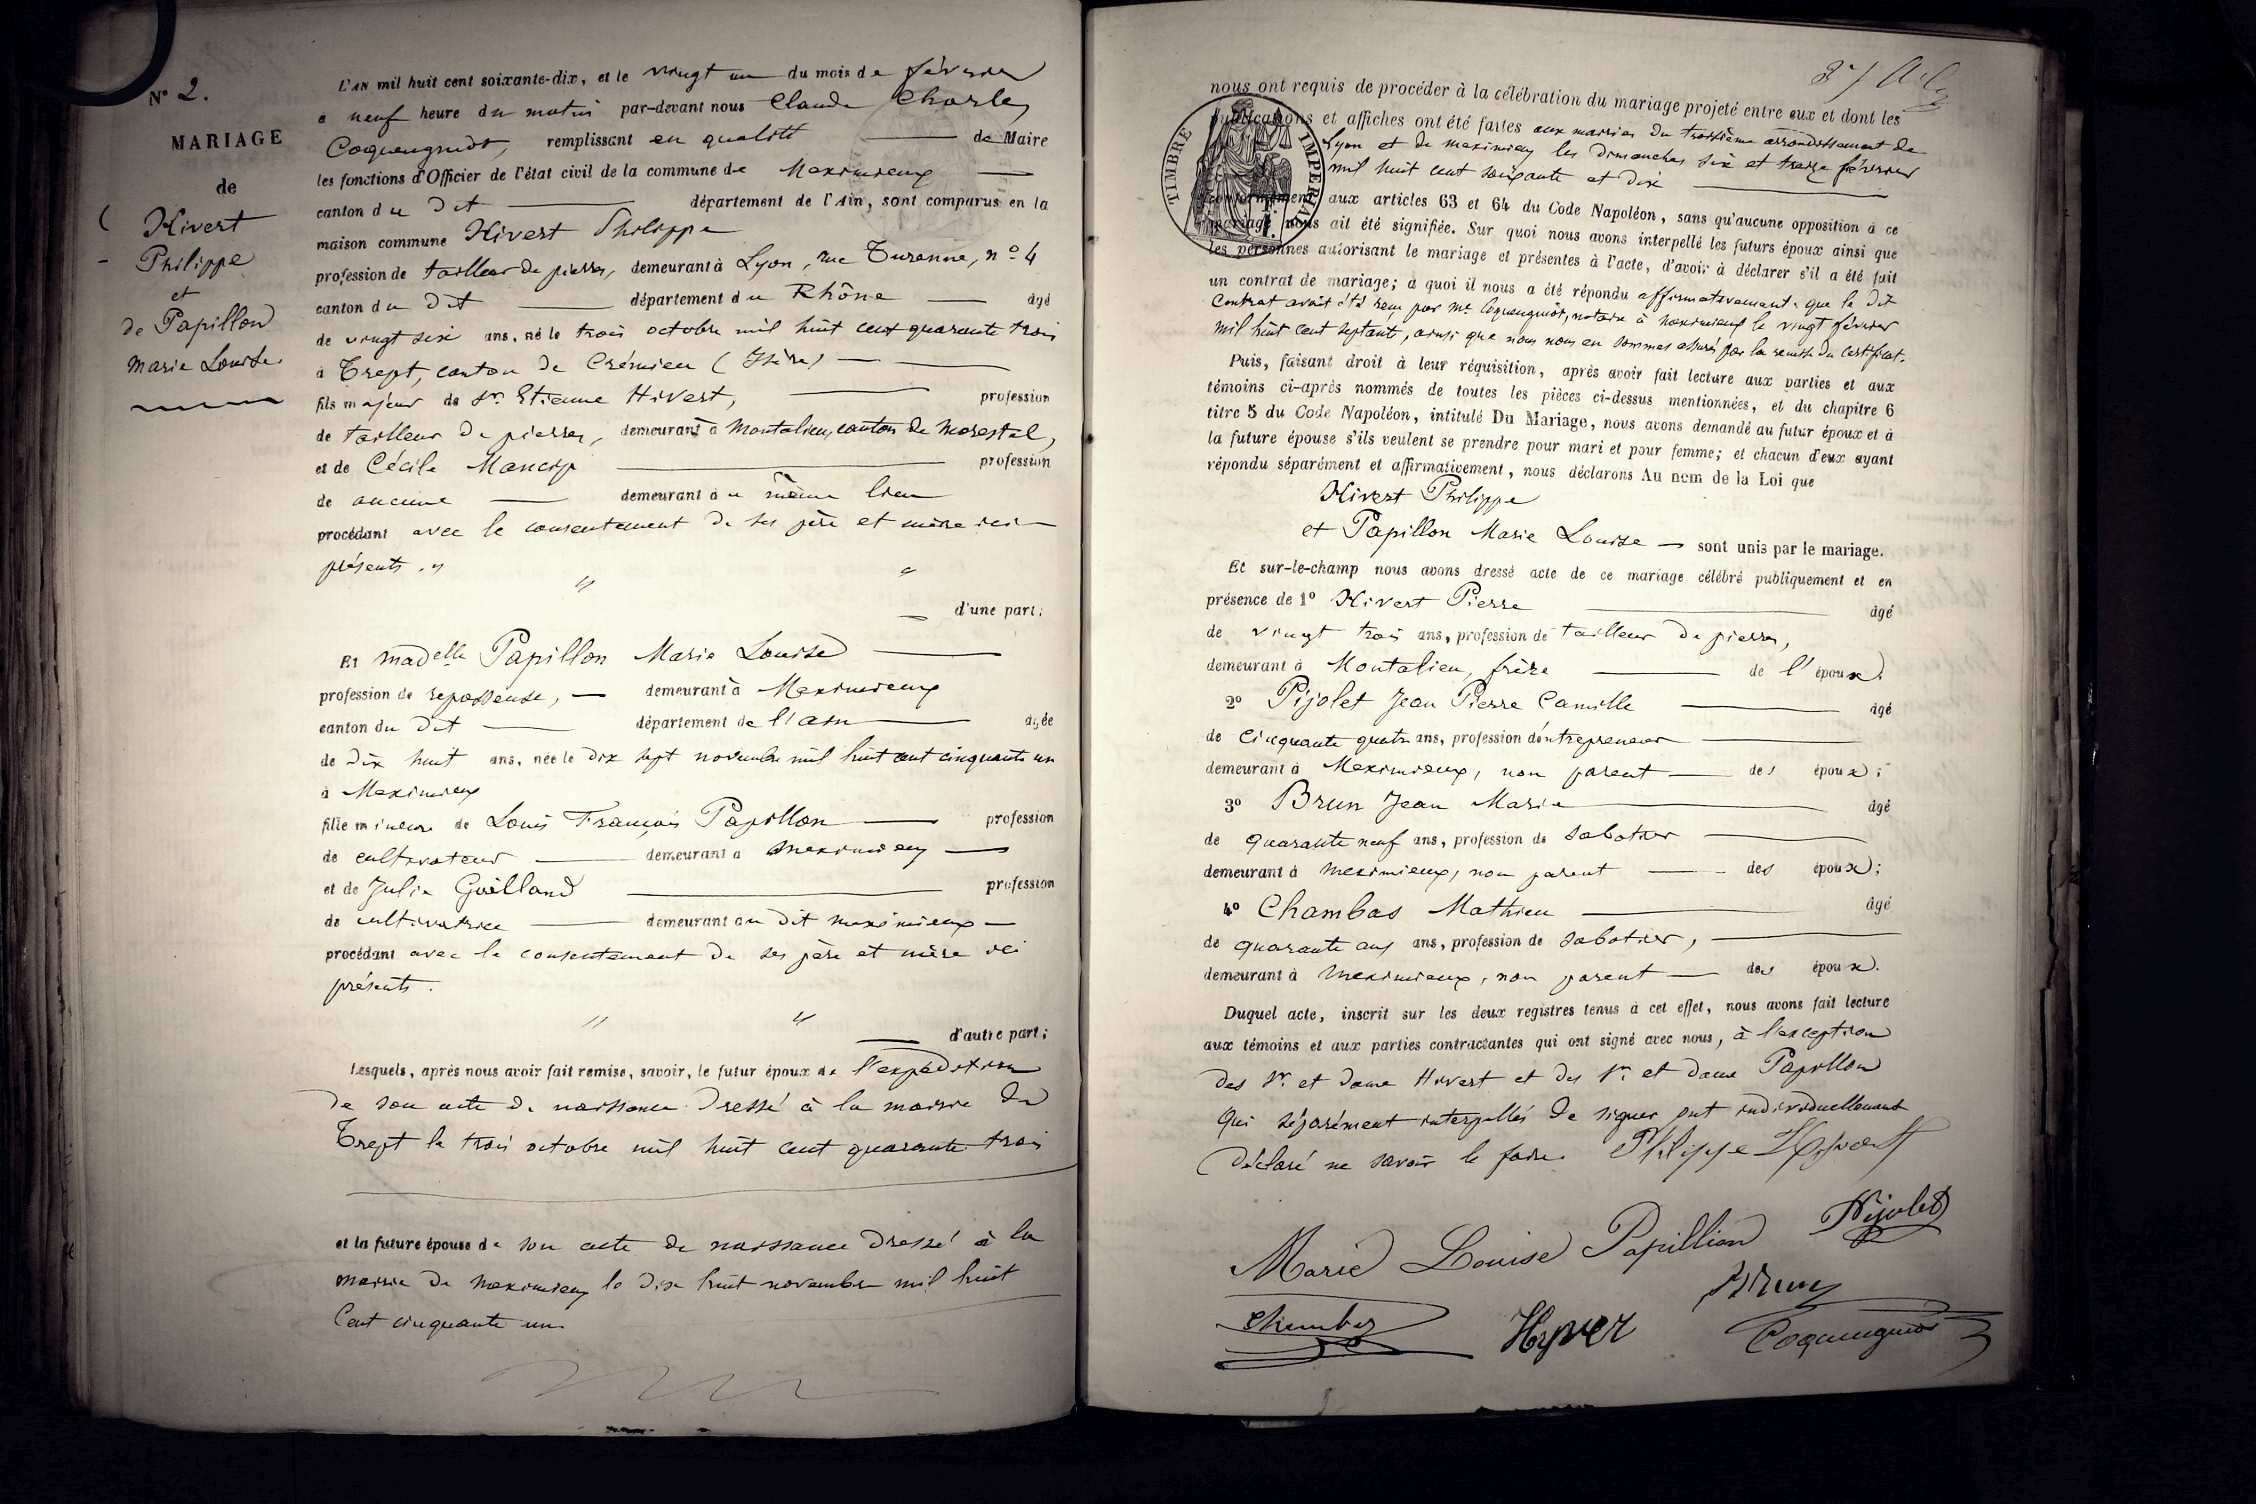 N° 2.
MARIAGE
de
Hivert
Philippe
et
de Papillon
Marie Louise.
L'AN mil huit cent soixante-dix, et le vingt un du mois de février
à neuf heure du matin par-devant nous Claude Charles
Coquengniot, remplissant en qualité de Maire
les fonctions d'Officier de l'état civil de la commune de Meximieux
canton du dit département de l'Ain, sont comparus en la
maison commune Hivert Philippe
profession de tailleur de pierres, demeurant à Lyon, rue Turenne, n° 4
canton du dit département du Rhône âgé
de vingt six ans, né le trois octobre mil huit cent quarante trois
à Trept, canton de Crémieu (Isère)
fils majeur de Sr. Etienne Hivert, profession
de tailleur de pierres, demeurant à Montalieu, canton de Morestel,
et de Cécile profession
de aucune demeurant au même lieu
procédant avec le consentement de ses père et mère ici
présents. "
" "
d'une part;
Et madelle Papillon Marie Louise
profession de repasseuse, demeurant à Meximieux
canton du dit département de l'ain âgée
de dix huit ans, née le dix sept novembre mil huit cent cinquante un
à Meximieux
fille mineure de Louis François Papillon profession
de cultivateur demeurant à Meximieux
et de Julie Goilland profession
de cultivatrice demeurant au dit meximieux
procédant avec le consentement de ses père et mère ici
présents.
" "
d'autre part;
Lesquels, après nous avoir fait remise, savoir, le futur époux de l'expédition
de son acte de naissance dressé à la mairie de
Trept le trois octobre mil huit cent quarante trois
et la future épouse de son acte de naissance dressé à la
mairie de meximieux le dix huit novembre mil huit
Cent cinquante un
nous ont requis de procéder à la célébration du mariage projeté entre eux et dont les
publications et affiches ont été faites aux mairies du troisième arrondissement de
Lyon et de meximieux les dimanches six et treize février
mil huit cent soixante et dix
TIMBRE IMPERIAL
conformément aux articles 63 et 64 du Code Napoléon, sans qu'aucune opposition à ce
mariage nous ait été signifiée. Sur quoi nous avons interpellé les futurs époux ainsi que
les personnes autorisant le mariage et présentes à l'acte, d'avoir à déclarer s'il a été fait
un contrat de mariage; à quoi il nous a été répondu affirmativement. que le dit
Contrat avait été reçu par Me. Coquengniot, notaire à meximieux le vingt février
mil huit cent septante, ainsi que nous nous en sommes assurés par la remise du certificat.
Puis, faisant droit à leur réquisition, après avoir fait lecture aux parties et aux
témoins ci-après nommés de toutes les pièces ci-dessus mentionnées, et du chapitre 6
titre 5 du Code Napoléon, intitulé Du Mariage, nous avons demandé au futur époux et à
la future épouse s'ils veulent se prendre pour mari et pour femme; et chacun d'eux ayant
répondu séparément et affirmativement, nous déclarons Au nom de la Loi que
Hivert Philippe
et Papillon Marie Louise sont unis par le mariage.
Et sur-le-champ nous avons dressé acte de ce mariage célébré publiquement et en
présence de 1° Hivert Pierre âgé
de vingt trois ans, profession de tailleur de pierres,
demeurant à Montalieu, frère de l'époux.
2° Pijolet Jean Pierre Camille âgé
de cinquante quatre ans, profession d'entrepreneur
demeurant à Meximieux, non parent des époux;
3° Brun Jean Marie âgé
de quarante neuf ans, profession de sabotier
demeurant à meximieux, non parent des époux;
4° Chambas Mathieu âgé
de quarante ans, profession de sabotier,
demeurant à meximieux, non parent des époux.
Duquel acte, inscrit sur les deux registres tenus à cet effet, nous avons fait lecture
aux témoins et aux parties contractantes qui ont signé avec nous, à l'exception
des Sr. et dame Hivert et des Sr. et dame Papillon
qui séparément interpellés de signer ont individuellement
déclaré ne savoir le faire. Philippe
Marie Louise Papillion Pijolet
Brun
Chambas Hyver Coquengniot